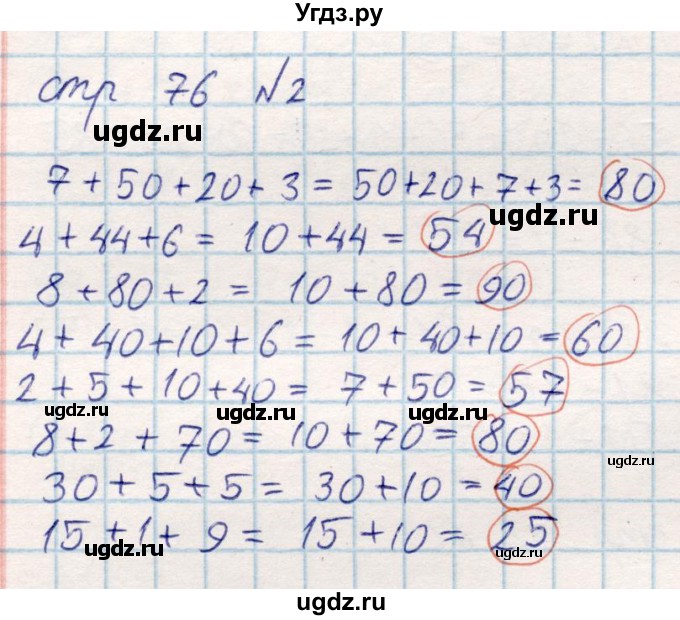 Угдз.ру
стр 76 №2
ugdz.ru
7 + 50 + 20 + 3 = 50 + 20 + 7 + 3 = 80
ugdz.ru
4 + 44 + 6 = 10 + 44 = 54
8 + 80 + 2 = 10 + 80 = 90
ugdz.ru
4 + 40 + 10 + 6 = 10 + 40 + 10 = 60
2 + 5 + 10 + 40 = 7 + 50 = 57
ugdz.ru ugdz.ru
8 + 2 + 70 = 10 + 70 = 80
ugdz.ru
30 + 5 + 5 = 30 + 10 = 40
15 + 1 + 9 = 15 + 10 = 25
ugdz.ru ugdz.ru
ugdz.ru